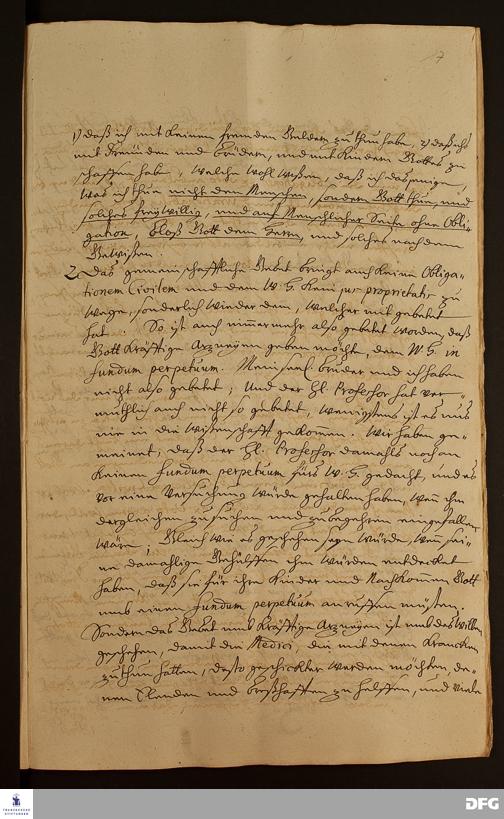 17
1) daß ich mit keinen fremden Geldern zu thun habe, 2) daß ichs
mit Freunden und Brüdern, und mit Kindern Gottes zu
schaffen habe, welche wohl wißen, daß ich dasjenige,
was ich thue nicht dem Menschen, sondern Gott thue, und
solches freywillig, und auf Menschlicher Seite ohne Obli-
gation, bloß Gott dem Herrn, und solches nach dem
Gewißen.
2. Das gemeinschafftliche Gebet bringt auch keine Obliga-
tionem Civilem und dem W. H. kein jus proprietatis zu
wege, sonderlich wieder den, welcher mit gebetet
hat. So ist auch nimmermehr also gebetet worden, daß
Gott kräfftige Arzneyen geben möchte, dem W. H. in
fundum perpetuum. Mein seel. Bruder und ich haben
nicht also gebetet; Und der Hl. Professor hat ver-
muthlich auch nicht so gebetet, wenigstens ist es uns
nie in die Wißenschafft gekommen. Wir haben ge-
meinet, daß der Hl. Professor damahls noch an
keinen fundum perpetuum fürs W. H. gedacht, und es
vor eine Versuchung würde gehalten haben, wenn ihm
dergleichen zu suchen und zu begehren eingefallen
wäre; Gleich wie es geschehen seyn würde, wenn sei-
ne damahlige Gehülffen ihm würden entdecket
haben, daß sie für ihre Kinder und Nachkommen Gott
umb einen fundum perpetuum anruffen müsten.
Sondern das Gebet umb kräfftige Arzneyen ist umb deswillen
geschehen, damit die Medici, die mit denen Krancken
zu thun hatten, desto geschickter werden möchten, de-
nen Elenden und Preßhafften zu helffen, und viele
FRANCKESCHE
STIFTUNGEN
DFG